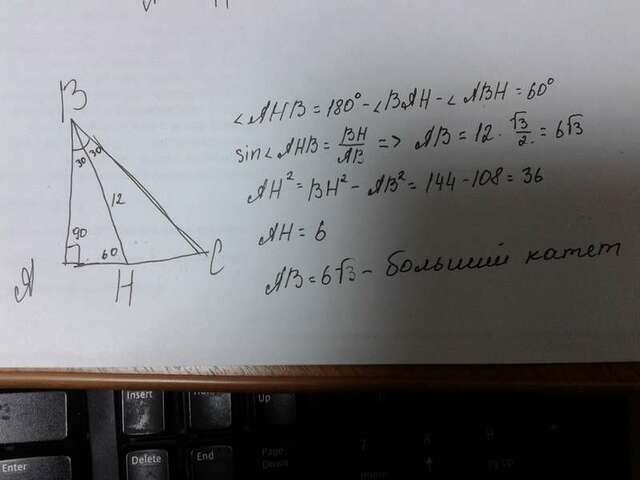 B
30 30
12
90
60
A
H
C
∠AHB = 180° - ∠BAH - ∠ABH = 60°
sin∠AHB = BH/AB => AB = 12 · √3/2 = 6√3
AH² = BH² - AB² = 144 - 108 = 36
AH = 6
AB = 6√3 - больший катет
Insert
Up
Delete
End
Page
Down
Enter
7
8
9